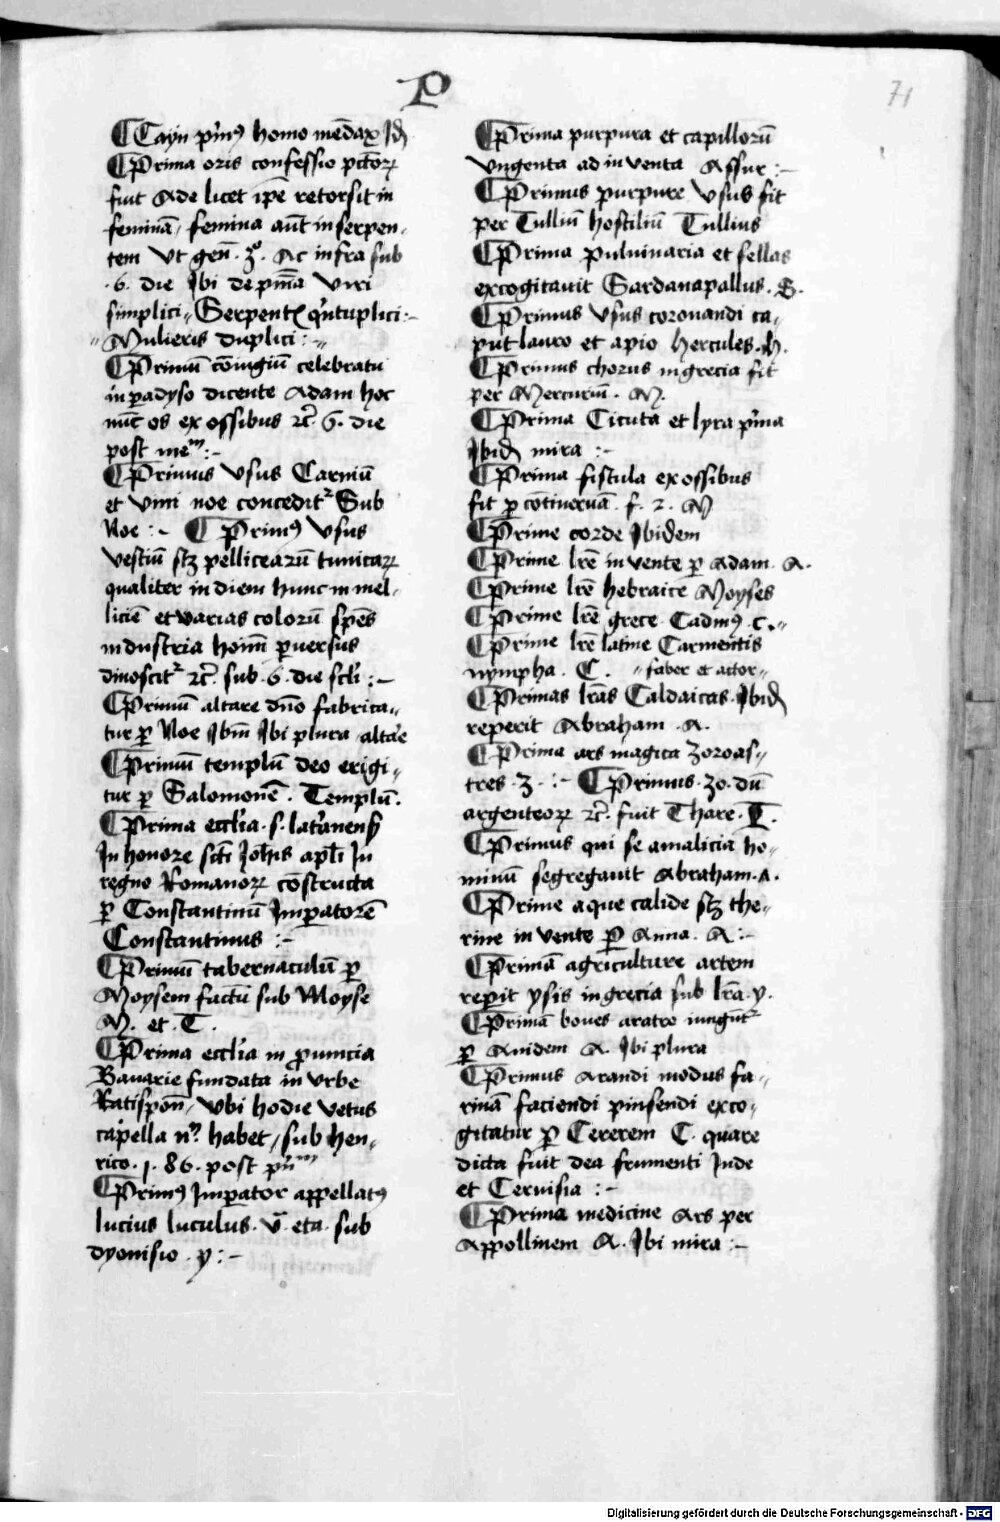 P
71
¶ Cayn prim9 homo mēdax Jd
¶ Prima oris confessio pctōrꝝ
fuit Ade licet ip̄e retorsit in
feminā / femina aūt in serpen-
tem Vt gen̄ . 3o . Ac infra sub
.6. die Ibi de pm̄a Viri
simplici // Serpentꝭ qi̓ntuplici :-
// Mulieris duplici : -
¶ Primū cōiugiū celebratu
in padyso dicente Adam hoc
nūc os ex ossibus ⁊c̄ . 6 . die
post me m :-
¶ Primus Vsus Carniū
et Vini noe conceditr Sub
Noe : - ¶ Prim9 Vsus
Vestiū scꝫ pellicearū tunicarꝝ
qualiter in diem hunc in mel-
liciē et varias colorū spēs
industria hoīm ꝑuersus
dinoscitr ⁊c̄ . sub . 6 . die scl̓i : -
¶ Primū altare dn̄o fabrica-
tur ꝑ Noe Ibm̄ Ibi plura altar̓e
¶ Primū templū deo erigi-
tur ꝑ Salomonē . Templū .
¶ Prima eccl̓ia . s . lat̓anenſ
In honore sct̄i Joh̄is apl̄i In
regno Romanorꝝ cōstructa
ꝑ Constantinū Imꝑatorē
Constantinus : -
¶ Primū tabernaculū ꝑ
Moysem factū sub Moyse
M . et . T .
¶ Prima eccl̓ia in ꝓuincia
Bauarie fundata in Vrbe
Ratispon̄ / Vbi hodie Vetus
capella habet / sub hen-
rico . 1 . 86 . post
¶ Prim9 Imꝑator appellat9
lucius luculus . v̄ . eta . sub
dyonisio . y : -
¶ Prima purpura et capillorū
Vngenta ad inventa Assur : -
¶ Primus purpure Vsus fit
per Tulliū hostiliū Tullius
¶ Prima puluinaria et sellas
excogitauit Sardanapallus . S .
¶ Primus Vsus coronandi ca-
put lauro et apio Hercules . h .
¶ Primus chorus in grecia fit
per Mercuriū . M .
¶ Prima Cicuta et lyra pi̓ma
Ibid mira : -
¶ Prima fistula ex ossibus
fit ꝑ f . 2 . M
¶ Prime corde Ibidem
¶ Prime lr̄e in vente ꝑ Adam . A .
¶ Prime lr̄e hebraice Moyses
¶ Prime lr̄e grece Cadm9 . C . //
¶ Prime lr̄e latine Carmentis
nympha . C . // faber et actor //
¶ Primas lr̄as Caldaicas . Ibid
reperit Abraham . A .
¶ Prima ars magica Zoroas-
tres . Z . : - ¶ Primus . 30 . dū
argenteorꝝ ⁊c̄ . fuit Thare . T .
¶ Primus qui se a malicia ho-
minū segregauit Abraham . A .
¶ Prime aque calide scꝫ the-
rme in vente ꝑ Anna . A : -
¶ Primā agriculture artem
reꝑit ysis in grecia sub lr̄a . y .
¶ Primā boues aratro iungūtr
ꝑ A . Ibi plura
¶ Primus Arandi modus fa-
rinā faciendi pinsendi exco-
gitatur ꝑ Cererem C . quare
dicta fuit dea frumenti Inde
et Ceruisia : -
¶ Prima medicine Ars per
Appollinem A . Ibi mira : -
Digitalisierung gefördert durch die Deutsche Forschungsgemeinschaft - DFG